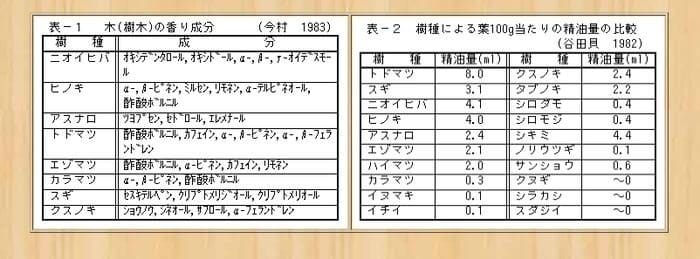 表－1　木(樹木)の香り成分　(今村　1983)
樹　種　成　分
ニオイヒバ　オキシデンタロール, オキシドール, α-, β-, r-オイデスモール
ヒノキ　α-, β-ピネン, ミルセン, リモネン, α-テルピネオール, 酢酸ボルニル
アスナロ　ツヨプセン, セドロール, エレメナール
トドマツ　酢酸ボルニル, カフェイン, α-, β-ピネン, α-, β-フェランドレン
エゾマツ　酢酸ボルニル, α-ピネン, カフェイン, リモネン
カラマツ　α-, β-ピネン, 酢酸ボルニル
スギ　セスキテルペン, クリプトメリジオール, クリプトメリオール
クスノキ　ショウノウ, シネオール, サフロール, α-フェランドレン
表－2　樹種による葉100g当たりの精油量の比較
(谷田貝　1982)
樹　種　精油量(ml)　樹　種　精油量(ml)
トドマツ　8.0　クスノキ　2.4
スギ　3.1　タブノキ　2.2
ニオイヒバ　4.1　シロダモ　0.4
ヒノキ　4.0　シロモジ　0.4
アスナロ　2.4　シキミ　4.4
エゾマツ　2.1　ノリウツギ　0.1
ハイマツ　2.0　サンショウ　0.6
カラマツ　0.3　クヌギ　～0
イヌマキ　0.1　シラカシ　～0
イチイ　0.1　スダジイ　～0